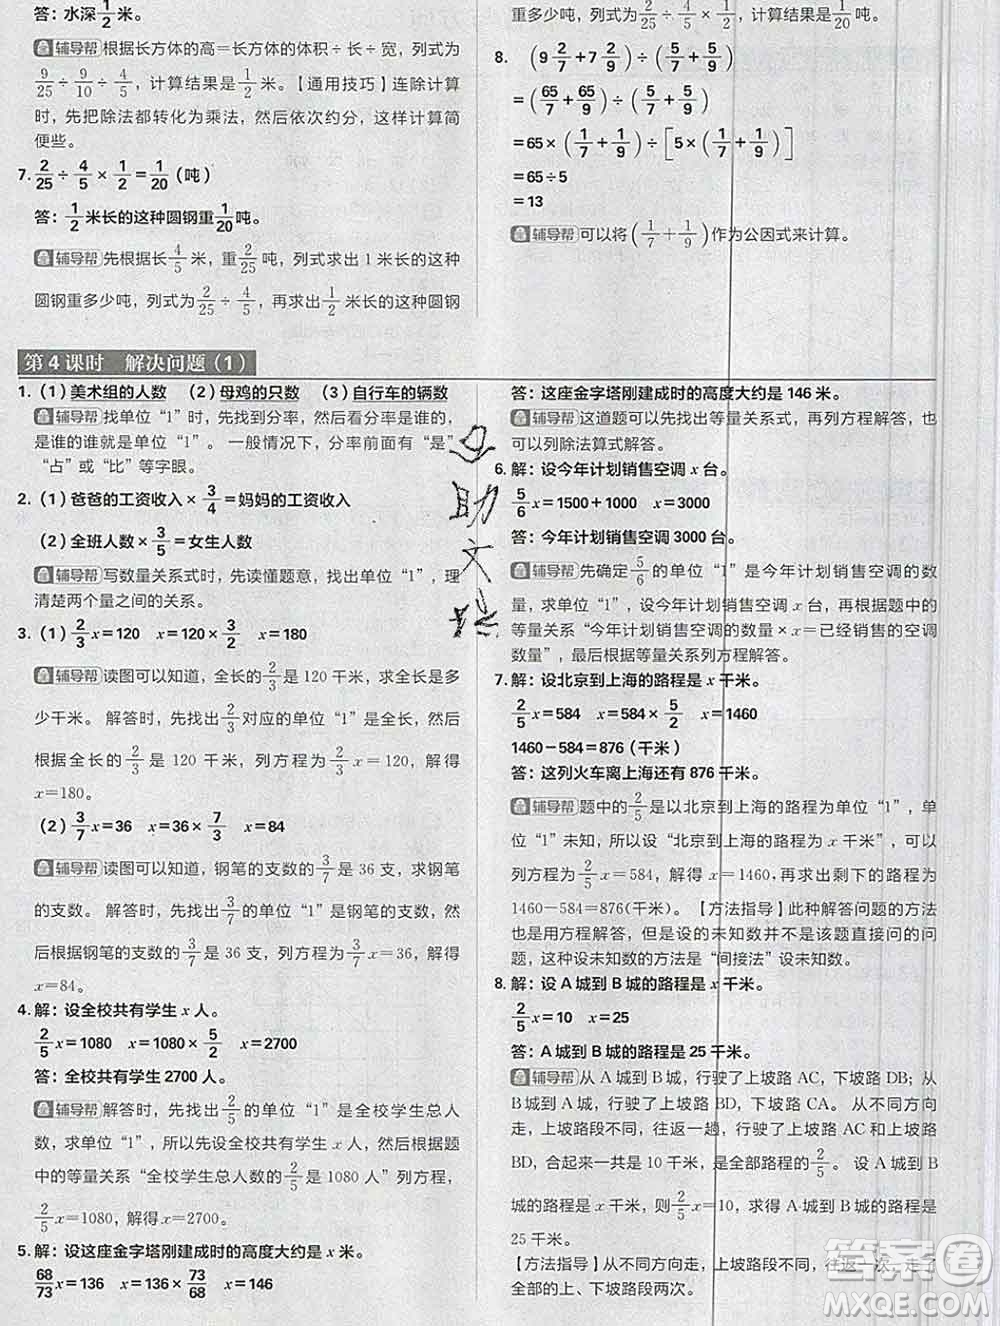 答：水深1/2米。
辅导帮 根据长方体的高=长方体的体积÷长÷宽，列式为
9/25÷9/10÷4/5，计算结果是1/2米。【通用技巧】连除计算
时，先把除法都转化为乘法，然后依次约分，这样计算简
便些。
7. 2/25÷4/5×1/2=1/20（吨）
答：1/2米长的这种圆钢重1/20吨。
辅导帮 先根据长4/5米，重2/25吨，列式求出1米长的这种
圆钢重多少吨，列式为2/25÷4/5，再求出1/2米长的这种圆钢
重多少吨，列式为2/25÷4/5×1/2，计算结果为1/20吨。
8. (9 2/7+7 2/9)÷(5/7+5/9)
=(65/7+65/9)÷(5/7+5/9)
=65×(1/7+1/9)÷[5×(1/7+1/9)]
=65÷5
=13
辅导帮 可以将(1/7+1/9)作为公因式来计算。
第4课时 解决问题（1）
1.（1）美术组的人数 （2）母鸡的只数 （3）自行车的辆数
辅导帮 找单位“1”时，先找到分率，然后看分率是谁的，
是谁的谁就是单位“1”。一般情况下，分率前面有“是”
“占”或“比”等字眼。
2.（1）爸爸的工资收入×3/4=妈妈的工资收入
（2）全班人数×3/5=女生人数
辅导帮 写数量关系式时，先读懂题意，找出单位“1”，理
清楚两个量之间的关系。
3.（1）2/3x=120 x=120×3/2 x=180
辅导帮 读图可以知道，全长的2/3是120千米，求全长是多
少千米。解答时，先找出2/3对应的单位“1”是全长，然后
根据全长的2/3是120千米，列方程为2/3x=120，解得
x=180。
（2）3/7x=36 x=36×7/3 x=84
辅导帮 读图可以知道，钢笔的支数的3/7是36支，求钢笔
的支数。解答时，先找出3/7的单位“1”是钢笔的支数，然
后根据钢笔的支数的3/7是36支，列方程为3/7x=36，解得
x=84。
4. 解：设全校共有学生x人。
2/5x=1080 x=1080×5/2 x=2700
答：全校共有学生2700人。
辅导帮 解答时，先找出2/5的单位“1”是全校学生总人
数，求单位“1”，所以先设全校共有学生x人，然后根据题
中的等量关系“全校学生总人数的2/5是1080人”列方程，
2/5x=1080，解得x=2700。
5. 解：设这座金字塔刚建成时的高度大约是x米。
68/73x=136 x=136×73/68 x=146
答：这座金字塔刚建成时的高度大约是146米。
辅导帮 这道题可以先找出等量关系式，再列方程解答，也
可以列除法算式解答。
6. 解：设今年计划销售空调x台。
5/6x=1500+1000 x=3000
答：今年计划销售空调3000台。
辅导帮 先确定5/6的单位“1”是今年计划销售空调的数
量，求单位“1”，设今年计划销售空调x台，再根据题中的
等量关系“今年计划销售空调的数量×x=已经销售的空调
数量”，最后根据等量关系列方程解答。
7. 解：设北京到上海的路程是x千米。
2/5x=584 x=584×5/2 x=1460
1460-584=876（千米）
答：这列火车离上海还有876千米。
辅导帮 题中的2/5是以北京到上海的路程为单位“1”，单
位“1”未知，所以设“北京到上海的路程为x千米”，列方
程为2/5x=584，解得x=1460，再求出剩下的路程为
1460-584=876（千米）。【方法指导】此种解答问题的方法
也是用方程解答，但是设的未知数并不是该题直接问的问
题，这种设未知数的方法是“间接法”设未知数。
8. 解：设A城到B城的路程是x千米。
2/5x=10 x=25
答：A城到B城的路程是25千米。
辅导帮 从A城到B城，行驶了上坡路AC，下坡路DB；从
B城到A城，行驶了上坡路BD，下坡路CA。从不同方向
走，上坡路段不同，往返一趟，行驶了上坡路AC和上坡路
BD，合起来一共是10千米，是全部路程的2/5。设A城到B
城的路程是x千米，则2/5x=10，求得A城到B城的路程是
25千米。
【方法指导】从不同方向走，上坡路段不同，往返一次，走了
全部的上、下坡路段两次。
答案圈
MXQE.COM